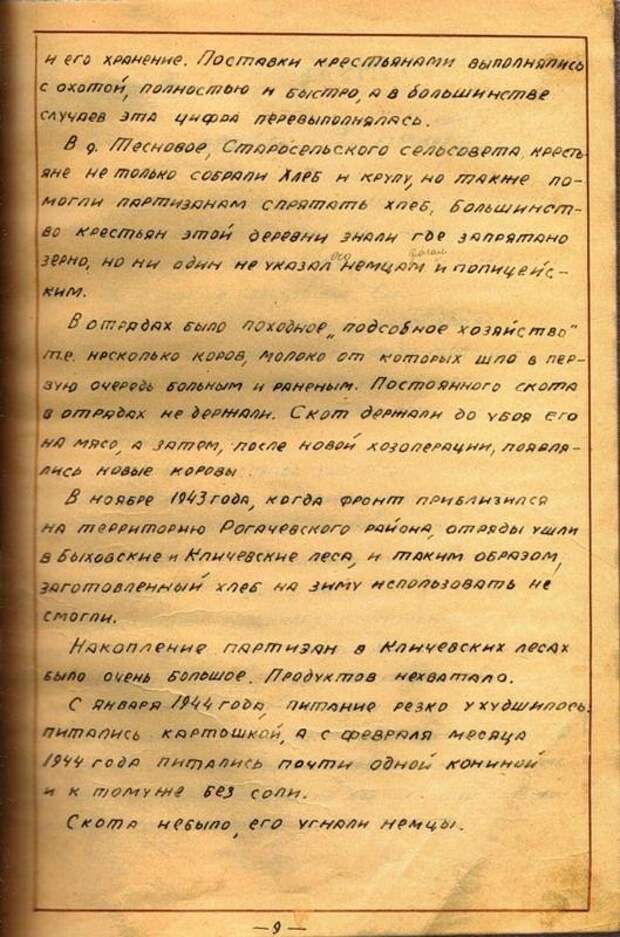 и его хранение. Поставки крестьянами выполнялись
с охотой, полностью и быстро, а в большинстве
случаев эта цифра перевыполнялась.
В д. Тесновое, Старосельского сельсовета, кресть-
яне не только собрали хлеб и крупу, но также по-
могли партизанам спрятать хлеб, большинст-
во крестьян этой деревни знали где запрятано
зерно, но ни один не указал его немцам и полицейс-
ким.
В отрядах было походное „подсобное хозяйство"
т.е. несколько коров, молоко от которых шло в пер-
вую очередь больным и раненым. Постоянного скота
в отрядах не держали. Скот держали до убоя его
на мясо, а затем, после новой хозоперации, появля-
лись новые коровы.
В ноябре 1943 года, когда фронт приблизился
на территорию Рогачевского района, отряды ушли
в Быховские и Кличевские леса, и таким образом,
заготовленный хлеб на зиму использовать не
смогли.
Накопление партизан в Кличевских лесах
было очень большое. Продуктов нехватало.
С января 1944 года, питание резко ухудшилось.
питались картошкой, а с февраля месяца
1944 года питались почти одной кониной
и к томуже без соли.
Скота небыло, его угнали немцы.
— 9 —